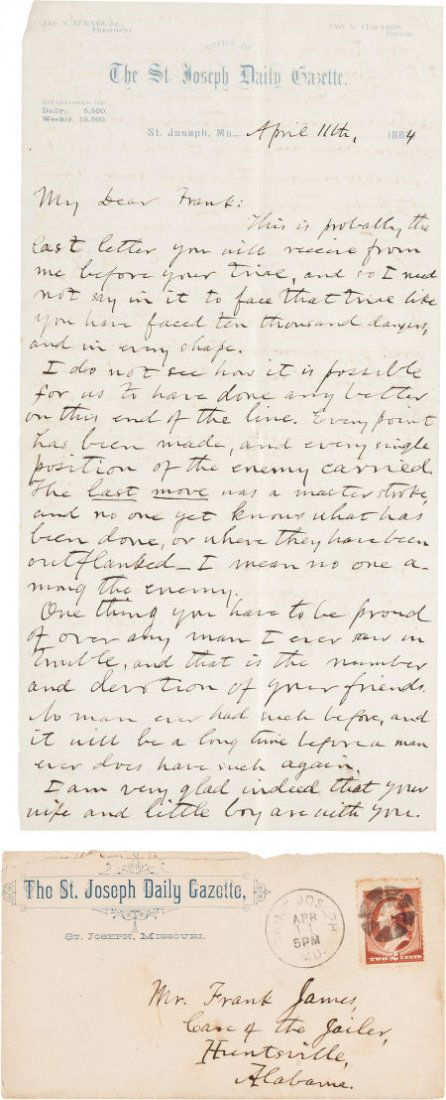 JAS. N. BURNES, JR.,
PRESIDENT.
JNO. N. EDWARDS,
EDITOR.
OFFICE OF
The St. Joseph Daily Gazette.
ESTABLISHED 1845
Daily: 5,500.
Weekly: 13,500.
St. Joseph, Mo., April 11th, 1884
My Dear Frank:
This is probably the
last letter you will receive from
me before your trial, and so I need
not say in it to face that trial like
you have faced ten thousand dangers,
and in every shape.
I do not see how it is possible
for us to have done any better
on this end of the line. Every point
has been made, and every single
position of the enemy carried.
The last move was a master stroke,
and no one yet knows what has
been done, or where they have been
outflanked – I mean no one a-
mong the enemy.
One thing you have to be proud
of over any man I ever saw in
trouble, and that is the number
and devotion of your friends.
No man ever had such before, and
it will be a long time before a man
ever does have such again.
I am very glad indeed that your
wife and little boy are with you.
The St. Joseph Daily Gazette,
ST. JOSEPH, MISSOURI.
SAINT JOSEPH
APR
11
5PM
MO.
TWO CENTS
Mr. Frank James,
Care of the Jailer,
Huntsville,
Alabama.